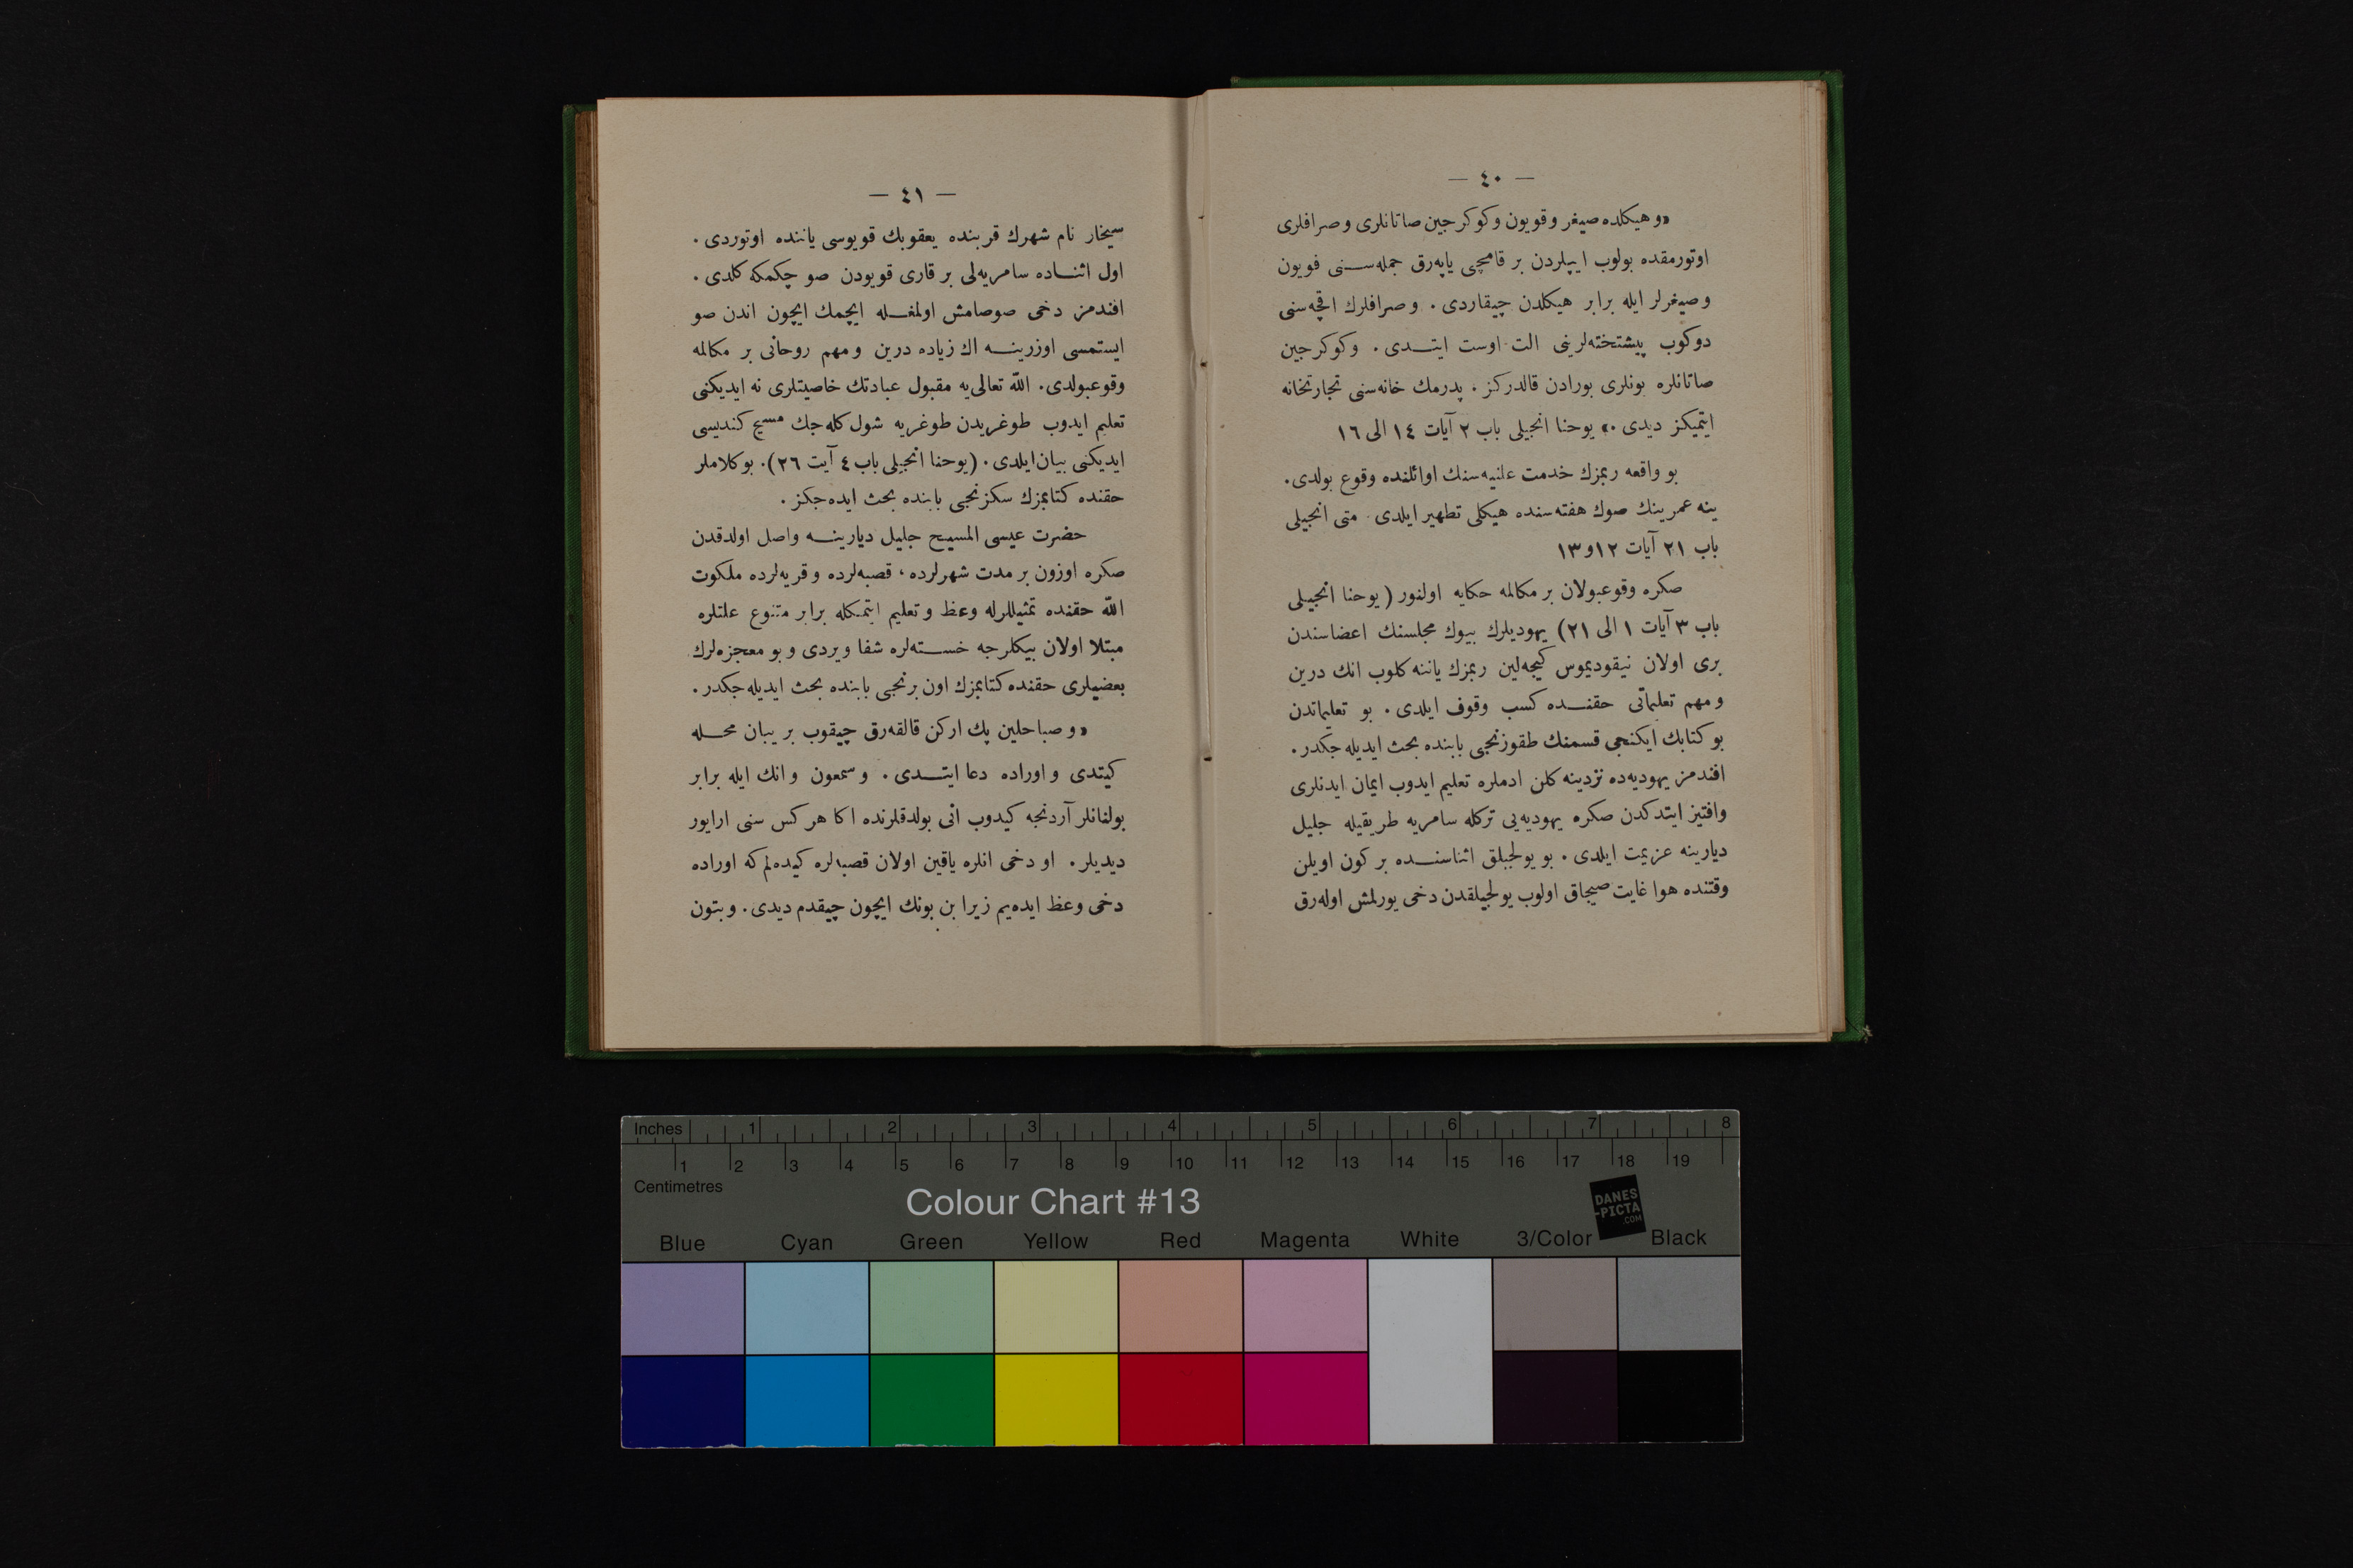 — ٤٠ —
«و هیكلده صیغر و قویون و كوكرجین صاتانلری و صرافلری
اوتورمقده بولوب ایپلردن بر قامچی یاپه‌رق جمله‌سـنی قویون
و صیغرلر ایله برابر هیكلدن چیقاردی . و صرافلرك اقچه‌سنی
دوكوب پیشتخته‌لرینی الت اوست ایتـدی . و كوكرجین
صاتانلره بونلری بورادن قالدركز . پدرمك خانه‌سنی تجارتخانه
ایتمیكز دیدی .» یوحنا انجیلی باب ٢ آیات ١٤ الی ١٦
بو واقعه ربمزك خدمت علنیه‌سنك اوائلنده وقوع بولدی.
ینه عمرینك صوك هفته‌سنده هیكلی تطهیر ایلدی . متی انجیلی
باب ٢١ آیات ١٢و١٣
صكره وقوعبولان بر مكالمه حكایه اولنور ( یوحنا انجیلی
باب ٣ آیات ١ الی ٢١) یهودیلرك بیوك مجلسنك اعضاسندن
بری اولان نیقودیموس كیجه‌لین ربمزك یاننه كلوب انك درین
و مهم تعلیماتی حقنـده كسب وقوف ایلدی . بو تعلیماتدن
بو كتابك ایكنجی قسمنك طقوزنجی بابنده بحث ایدیله‌جكدر.
افندمز یهودیه‌ده نزدینه كلن ادملره تعلیم ایدوب ایمان ایدنلری
وافتیز ایتدكدن صكره یهودیه‌یی تركله سامریه طریقیله جلیل
دیارینه عزیمت ایلدی . بو یولجیلق اثناسنـده بر كون اویلن
وقتنده هوا غایت صیجاق اولوب یولجیلقدن دخی یورلمش اوله‌رق
— ٤١ —
سیخار نام شهرك قربنده یعقوبك قویوسی یاننده اوتوردی .
اول اثنـاده سامریه‌لی بر قاری قویودن صو چكمكه كلدی .
افندمز دخی صوصامش اولمغـله ایچمك ایچون اندن صو
ایستمسی اوزرینـه اك زیاده درین و مهم روحانی بر مكالمه
وقوعبولدی. اللّٰه تعالی‌یه مقبول عبادتك خاصیتلری نه ایدیكنی
تعلیم ایدوب طوغریدن طوغریه شول كله‌جك مسیح كندیسی
ایدیكنی بیان ایلدی . (یوحنا انجیلی باب ٤ آیت ٢٦). بو كلاملر
حقنده كتابمزك سكزنجی بابنده بحث ایده‌جكز .
حضرت عیسی المسیح جلیل دیارینـه واصل اولدقدن
صكره اوزون بر مدت شهرلرده ، قصبه‌لرده و قریه‌لرده ملكوت
اللّٰه حقنده تمثیللرله وعظ و تعلیم ایتمكله برابر متنوع علتلره
مبتلا اولان بیكلرجه خسـته‌لره شفا ویردی و بو معجزه‌لرك
بعضیلری حقنده كتابمزك اون برنجی بابنده بحث ایدیله‌جكدر .
«و صباحلین پك اركن قالقه‌رق چیقوب بر یبان محـله
كیتدی و اوراده دعا ایتـدی . و سمعون و انك ایله برابر
بولنانلر آردنجه كیدوب انی بولدقلرنده اكا هر كس سنی ارایور
دیدیلر . او دخی انلره یاقین اولان قصبه‌لره كیده‌لم كه اوراده
دخی وعظ ایده‌یم زیرا بن بونك ایچون چیقدم دیدی . و بتون
Inches 1 2 3 4 5 6 7 8
1 2 3 4 5 6 7 8 9 10 11 12 13 14 15 16 17 18 19
Centimetres
Colour Chart #13
DANES
-PICTA
.COM
Blue Cyan Green Yellow Red Magenta White 3/Color Black